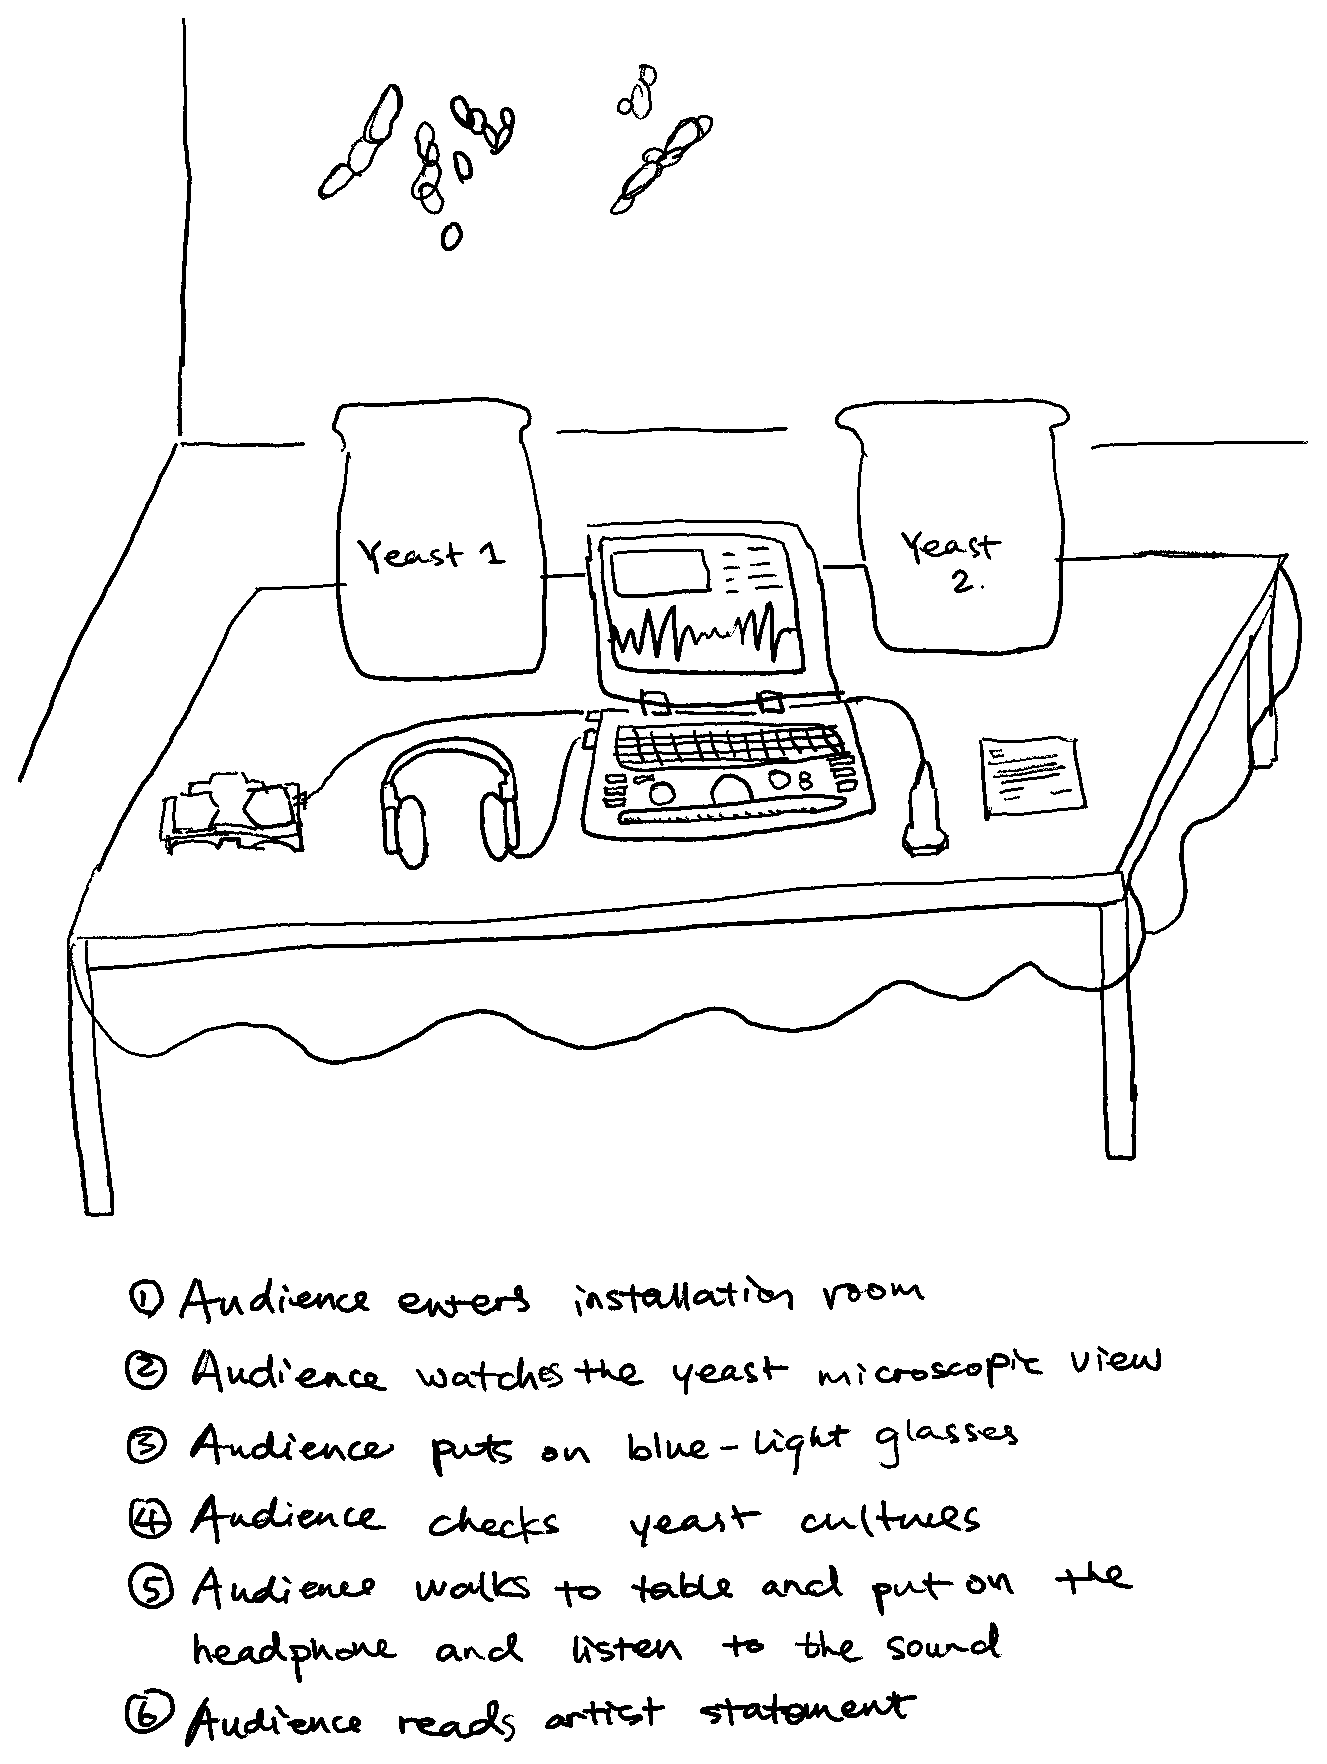 Yeast 1
Yeast
2.
① Audience enters installation room
② Audience watches the yeast microscopic view
③ Audience puts on blue-light glasses
④ Audience checks yeast cultures
⑤ Audience walks to table and put on the
headphone and listen to the sound
⑥ Audience reads artist statement